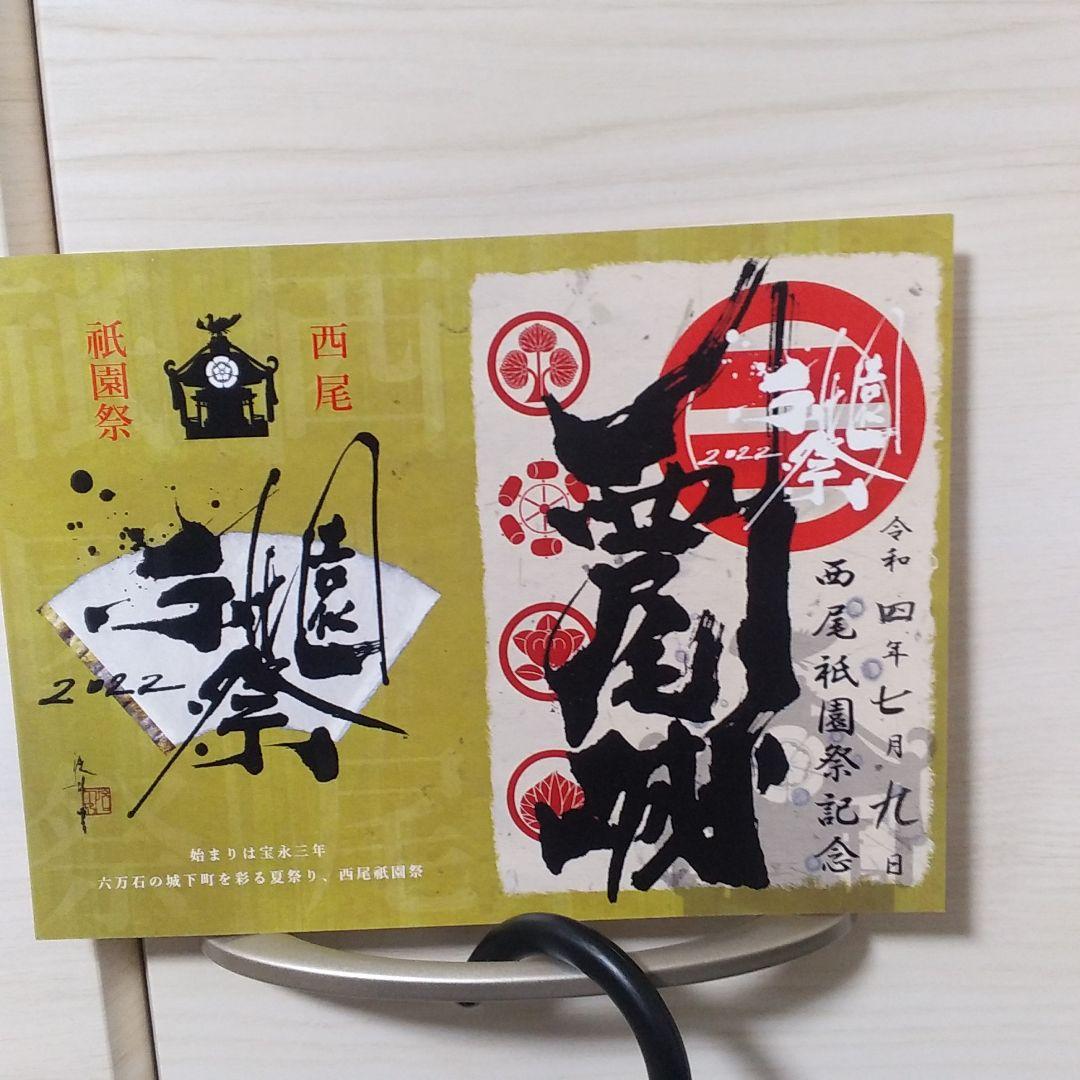 西尾
祇園祭
祇園祭
2022
始まりは宝永三年
六万石の城下町を彩る夏祭り、西尾祇園祭
祇園祭
2022
西尾城
令和四年七月九日
西尾祇園祭記念